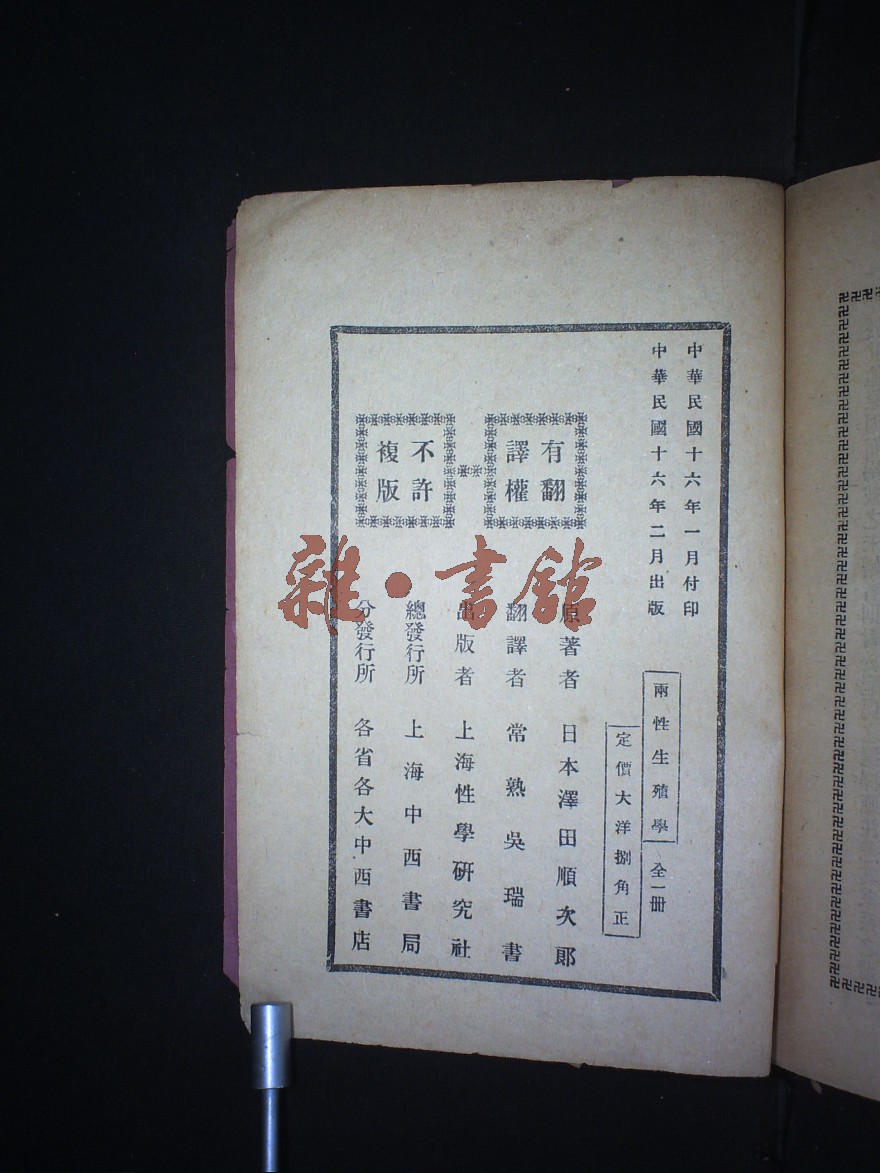 中華民國十六年一月付印
中華民國十六年二月出版
兩性生殖學 全一册
定價大洋捌角正
有翻
譯權
不許
複版
原著者 日本澤田順次郎
翻譯者 常熟吳瑞書
出版者 上海性學硏究社
總發行所 上海中西書局
分發行所 各省各大中西書店
雜·書館